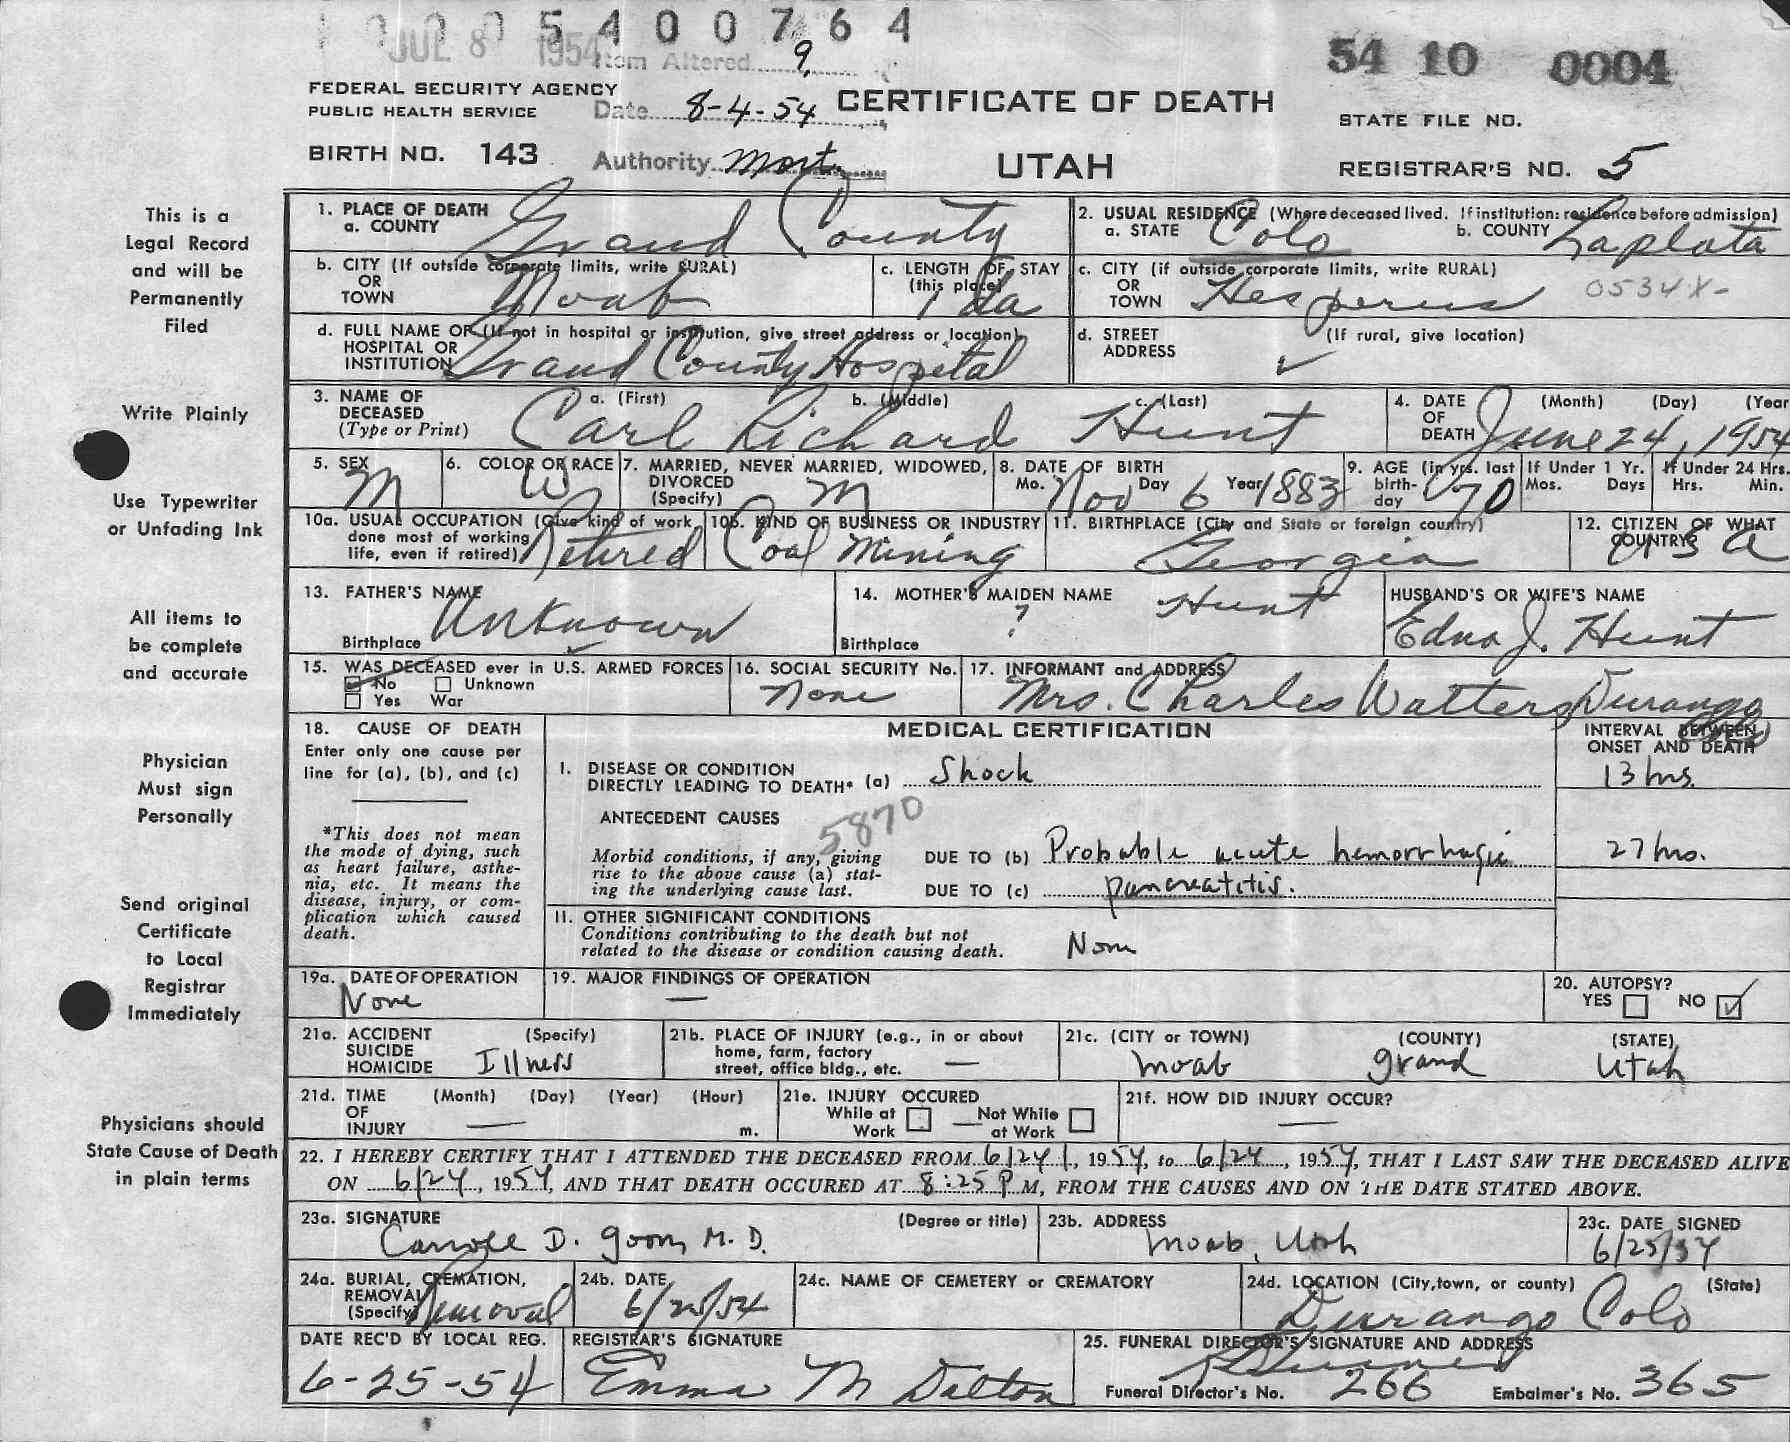 10005400764
JUL 8 1954
Item Altered 9,
54 10 0004
FEDERAL SECURITY AGENCY
PUBLIC HEALTH SERVICE
Date 8-4-54
CERTIFICATE OF DEATH
STATE FILE NO.
BIRTH NO. 143
Authority Mort
UTAH
REGISTRAR'S NO. 5
This is a
Legal Record
and will be
Permanently
Filed
Write Plainly
Use Typewriter
or Unfading Ink
All items to
be complete
and accurate
Physician
Must sign
Personally
Send original
Certificate
to Local
Registrar
Immediately
Physicians should
State Cause of Death
in plain terms
1. PLACE OF DEATH
a. COUNTY Grand County
2. USUAL RESIDENCE (Where deceased lived. If institution: residence before admission)
a. STATE Colo b. COUNTY Laplata
b. CITY (If outside corporate limits, write RURAL)
OR
TOWN Moab
c. LENGTH OF STAY
(this place) 1 da
c. CITY (if outside corporate limits, write RURAL)
OR
TOWN Hesperus 0534X-
d. FULL NAME OF (If not in hospital or institution, give street address or location)
HOSPITAL OR
INSTITUTION Grand County Hospital
d. STREET (If rural, give location)
ADDRESS ✓
3. NAME OF a. (First) b. (Middle) c. (Last)
DECEASED
(Type or Print) Carl Richard Hunt
4. DATE (Month) (Day) (Year
OF
DEATH June 24, 1954
5. SEX M
6. COLOR OR RACE W
7. MARRIED, NEVER MARRIED, WIDOWED,
DIVORCED
(Specify) M
8. DATE OF BIRTH
Mo. Nov Day 6 Year 1883
9. AGE (in yrs. last
birth-
day 70
If Under 1 Yr.
Mos. Days
If Under 24 Hrs.
Hrs. Min.
10a. USUAL OCCUPATION (Give kind of work
done most of working
life, even if retired) Retired
10b. KIND OF BUSINESS OR INDUSTRY
Coal Mining
11. BIRTHPLACE (City and State or foreign country)
Georgia
12. CITIZEN OF WHAT
COUNTRY? USA
13. FATHER'S NAME
Unknown
Birthplace ✓
14. MOTHER'S MAIDEN NAME Hunt
?
Birthplace
HUSBAND'S OR WIFE'S NAME
Edna J. Hunt
15. WAS DECEASED ever in U.S. ARMED FORCES
No Unknown
Yes War
16. SOCIAL SECURITY No.
None
17. INFORMANT and ADDRESS
Mrs. Charles Watters Durango
Colo
18. CAUSE OF DEATH
Enter only one cause per
line for (a), (b), and (c)
*This does not mean
the mode of dying, such
as heart failure, asthe-
nia, etc. It means the
disease, injury, or com-
plication which caused
death.
MEDICAL CERTIFICATION
INTERVAL BETWEEN
ONSET AND DEATH
I. DISEASE OR CONDITION
DIRECTLY LEADING TO DEATH* (a) Shock 13 hrs.
ANTECEDENT CAUSES
5870
Morbid conditions, if any, giving
rise to the above cause (a) stat-
ing the underlying cause last.
DUE TO (b) Probable acute hemorrhagic 27 hrs.
DUE TO (c) pancreatitis.
II. OTHER SIGNIFICANT CONDITIONS
Conditions contributing to the death but not
related to the disease or condition causing death. None
19a. DATE OF OPERATION
None
19. MAJOR FINDINGS OF OPERATION
—
20. AUTOPSY?
YES NO ✓
21a. ACCIDENT (Specify)
SUICIDE
HOMICIDE Illness
21b. PLACE OF INJURY (e.g., in or about
home, farm, factory
street, office bldg., etc. —
21c. (CITY or TOWN) (COUNTY) (STATE)
Moab Grand Utah
21d. TIME (Month) (Day) (Year) (Hour)
OF
INJURY — m.
21e. INJURY OCCURED
While at Work — Not While at Work
21f. HOW DID INJURY OCCUR?
—
22. I HEREBY CERTIFY THAT I ATTENDED THE DECEASED FROM 6/24, 1954, to 6/24, 1954, THAT I LAST SAW THE DECEASED ALIVE
ON 6/24, 1954, AND THAT DEATH OCCURED AT 8:25 P M, FROM THE CAUSES AND ON THE DATE STATED ABOVE.
23a. SIGNATURE (Degree or title)
D. M.D.
23b. ADDRESS
Moab, Utah
23c. DATE SIGNED
6/25/54
24a. BURIAL, CREMATION,
REMOVAL
(Specify) Removal
24b. DATE
6/25/54
24c. NAME OF CEMETERY or CREMATORY
24d. LOCATION (City, town, or county) (State)
Durango Colo
DATE REC'D BY LOCAL REG.
6-25-54
REGISTRAR'S SIGNATURE
Emma M Dalton
25. FUNERAL DIRECTOR'S SIGNATURE AND ADDRESS
Funeral Director's No. 266 Embalmer's No. 365